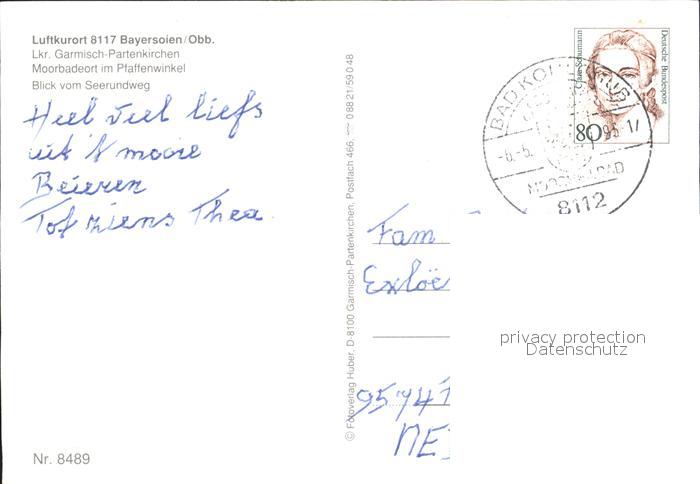 Luftkurort 8117 Bayersoien/Obb.
Lkr. Garmisch-Partenkirchen
Moorbadeort im Pfaffenwinkel
Blick vom Seerundweg
Heel veel liefs
uit 't mooie
Beieren
Tot ziens Thea.
© Fotoverlag Huber, D-8100 Garmisch-Partenkirchen, Postfach 466, 0 88 21/59 0 48
Clara Schumann
Deutsche Bundespost
80
BAD KOHLGRUB
-6.-5.
8112
Fam
Exloë
9574
NE
privacy protection
Datenschutz
Nr. 8489